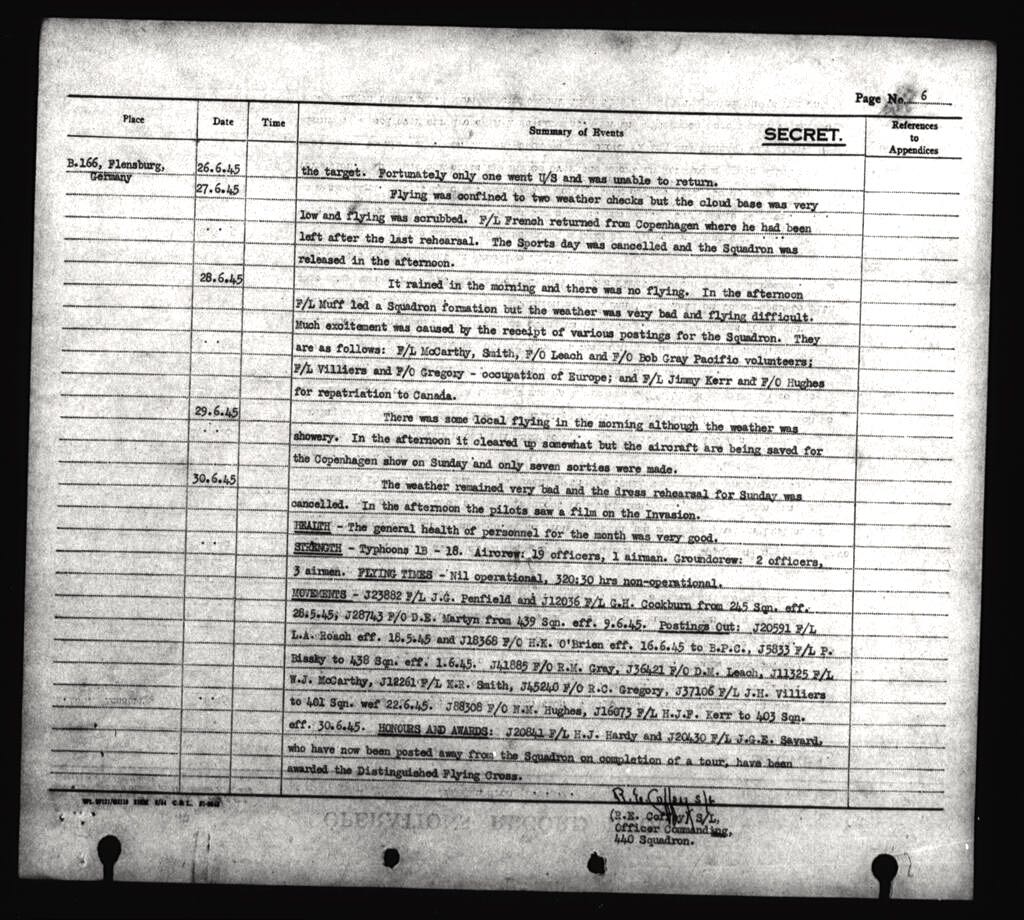 Page No. 6
Place Date Time Summary of Events SECRET. References to Appendices
B.166, Flensburg, Germany
26.6.45 the target. Fortunately only one went U/S and was unable to return.
27.6.45 Flying was confined to two weather checks but the cloud base was very
low and flying was scrubbed. F/L French returned from Copenhagen where he had been
left after the last rehearsal. The Sports day was cancelled and the Squadron was
released in the afternoon.
28.6.45 It rained in the morning and there was no flying. In the afternoon
F/L Muff led a Squadron formation but the weather was very bad and flying difficult.
Much excitement was caused by the receipt of various postings for the Squadron. They
are as follows: F/L McCarthy, Smith, F/O Leach and F/O Bob Gray Pacific volunteers;
F/L Villiers and F/O Gregory - occupation of Europe; and F/L Jimmy Kerr and F/O Hughes
for repatriation to Canada.
29.6.45 There was some local flying in the morning although the weather was
showery. In the afternoon it cleared up somewhat but the aircraft are being saved for
the Copenhagen show on Sunday and only seven sorties were made.
30.6.45 The weather remained very bad and the dress rehearsal for Sunday was
cancelled. In the afternoon the pilots saw a film on the Invasion.
HEALTH - The general health of personnel for the month was very good.
STRENGTH - Typhoons 1B - 18. Aircrew: 19 officers, 1 airman. Groundcrew: 2 officers,
3 airmen. FLYING TIMES - Nil operational, 320:30 hrs non-operational.
MOVEMENTS - J23882 F/L J.G. Penfield and J12036 F/L G.H. Cockburn from 245 Sqn. eff.
28.5.45; J28743 F/O D.E. Martyn from 439 Sqn. eff. 9.6.45. Postings Out: J20591 F/L
L.A. Roach eff. 18.5.45 and J18368 F/O H.K. O'Brien eff. 16.6.45 to B.P.C., J5833 F/L P.
Bissky to 438 Sqn. eff. 1.6.45. J41885 F/O R.M. Gray, J36421 F/O D.M. Leach, J11325 F/L
W.J. McCarthy, J12261 F/L K.R. Smith, J45240 F/O R.C. Gregory, J37106 F/L J.H. Villiers
to 401 Sqn. wef 22.6.45. J88308 F/O N.M. Hughes, J16073 F/L H.J.F. Kerr to 403 Sqn.
eff. 30.6.45. HONOURS AND AWARDS: J20841 F/L H.J. Hardy and J20430 F/L J.G.E. Savard,
who have now been posted away from the Squadron on completion of a tour, have been
awarded the Distinguished Flying Cross.
R.E. Coffey S/L
(R.E. Coffey) S/L,
Officer Commanding,
440 Squadron.
OPERATIONS RECORD